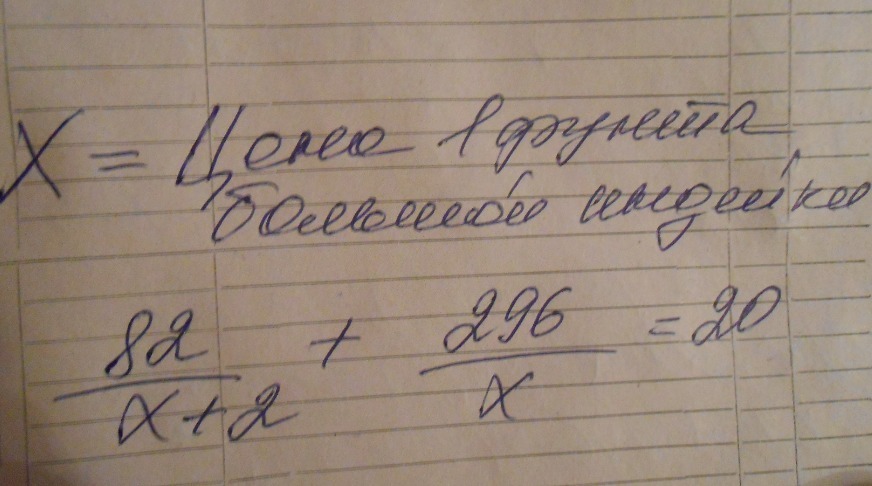 X = Цена 1 фунта
большой индейки
82/(x+2) + 296/x = 20